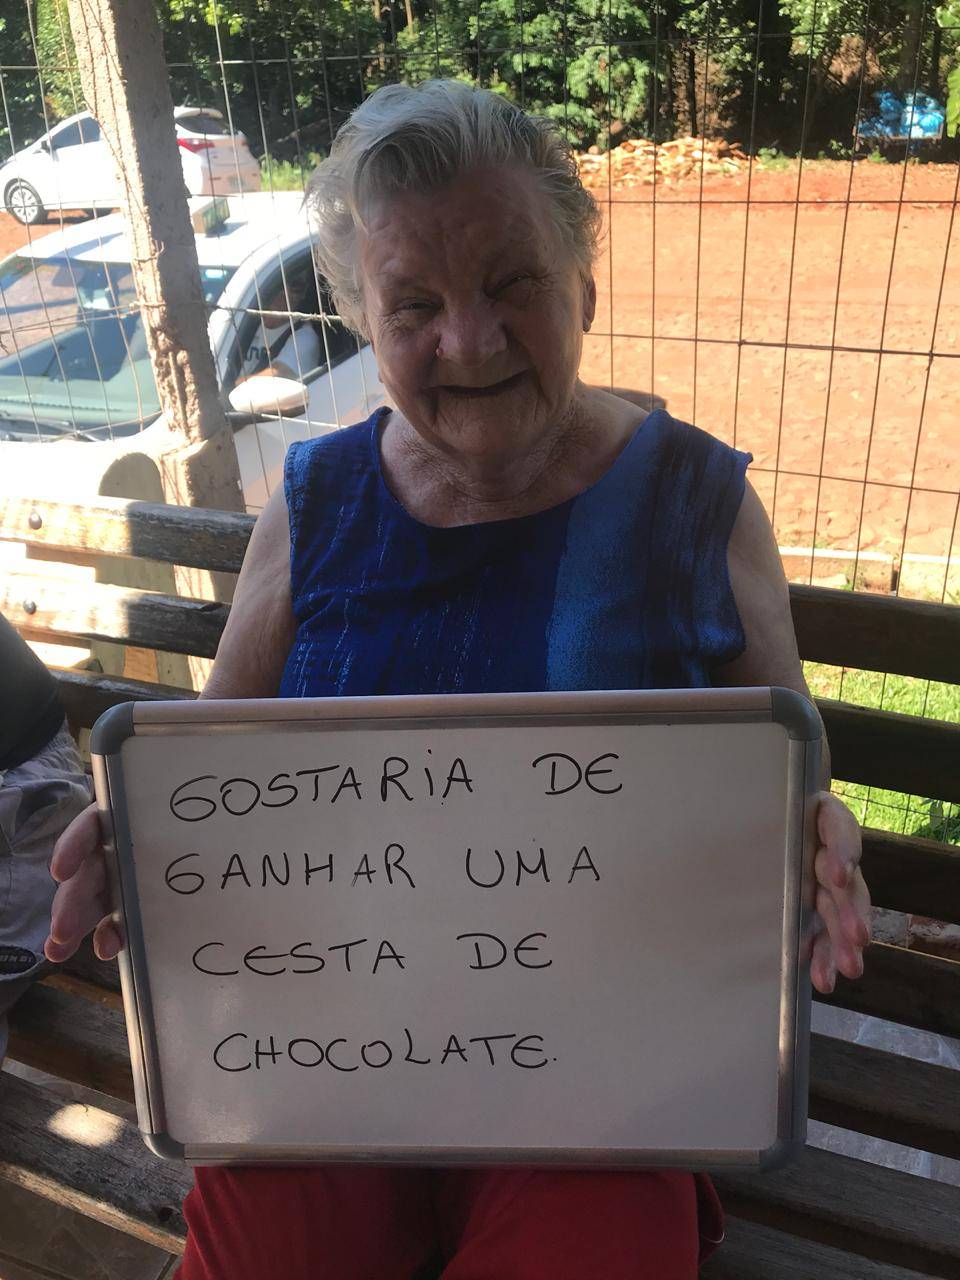 GOSTARiA DE
GANHAR UMA
CESTA DE
CHOCOLATE.